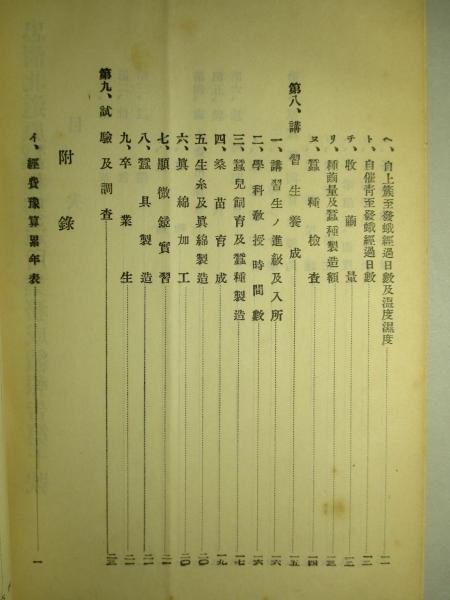 ヘ、自上簇至發蛾經過日數及溫度濕度………一一
ト、自催靑至發蛾經過日數………一二
チ、收繭量………一二
リ、種繭量及蠶種製造額………一三
ヌ、蠶種檢査………一四
第八、講習生養成………一五
一、講習生ノ進級及入所………一六
二、學科敎授時間數………一六
三、蠶兒飼育及蠶種製造………一七
四、桑苗育成………一九
五、生糸及眞綿製造………二〇
六、眞綿加工………二〇
七、顯微鏡實習………二一
八、蠶具製造………二一
九、卒業生………二一
第九、試驗及調査………二三
附錄
イ、經費豫算累年表………一